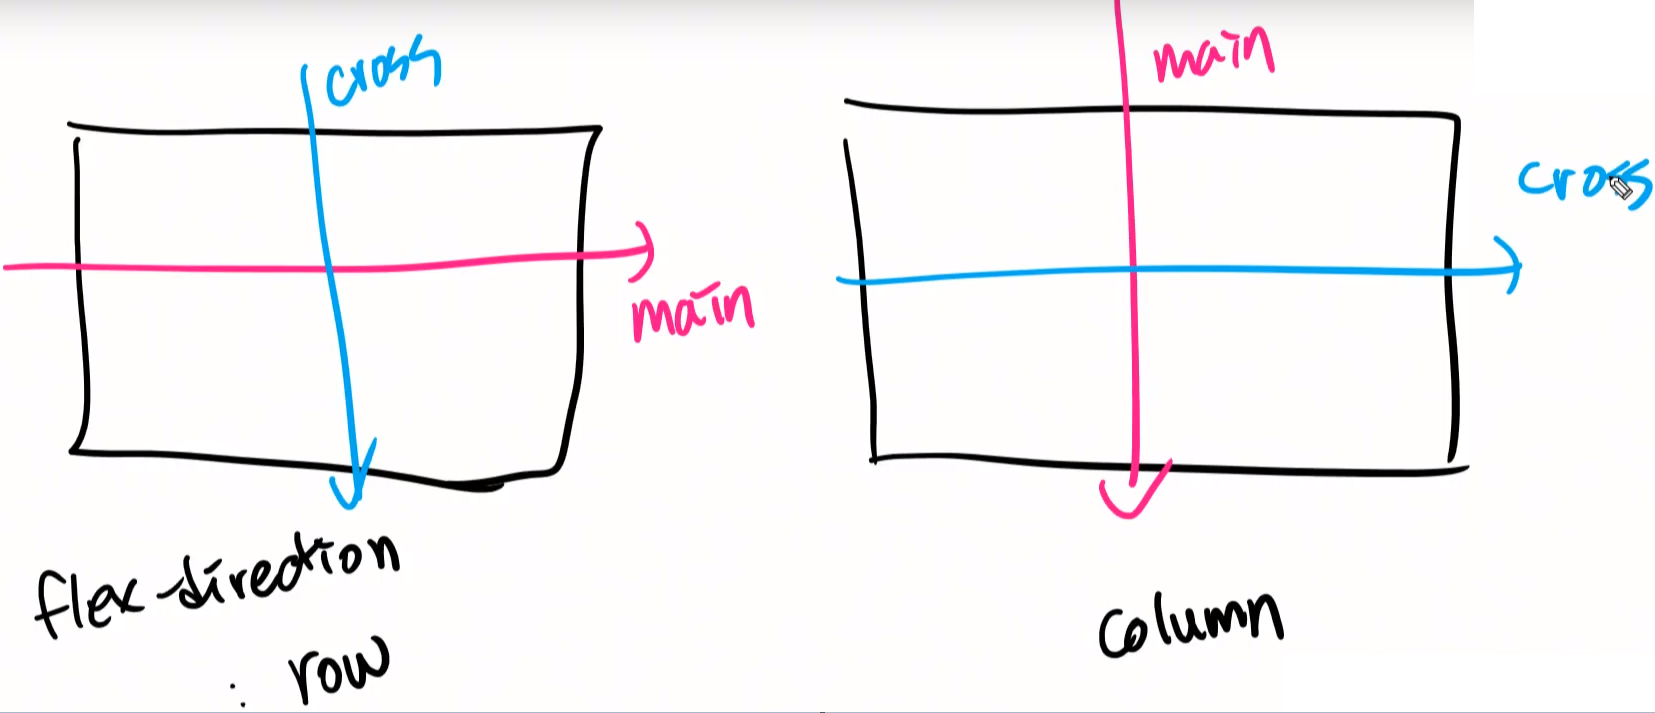 cross
main
flex-direction
: row
main
cross
column